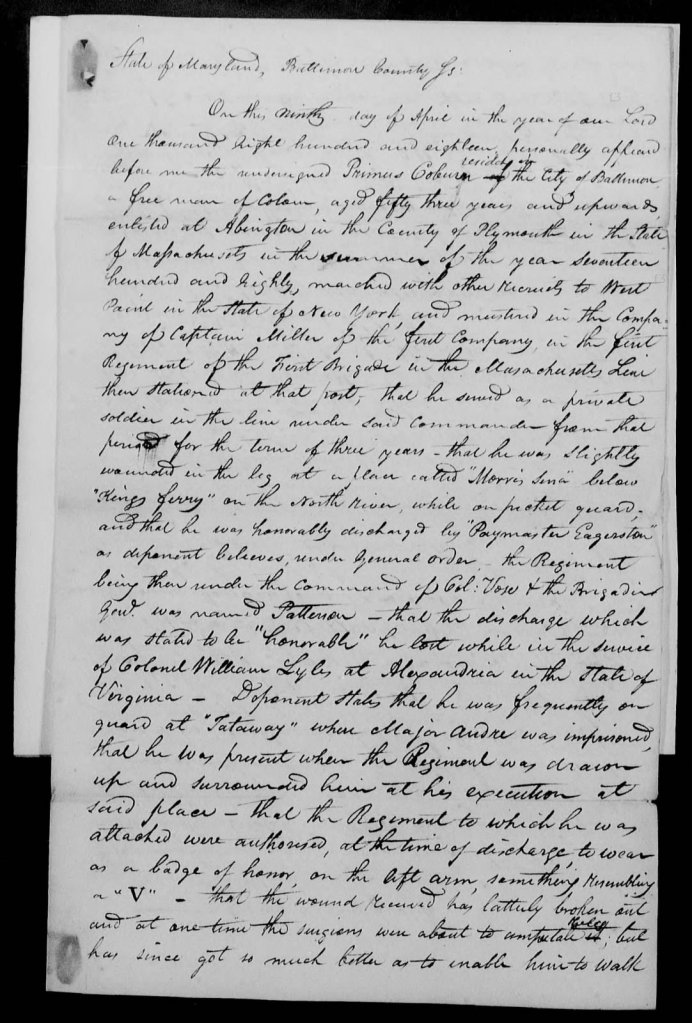 State of Maryland, Baltimore County Ss:
On this ninth day of April in the year of our Lord
One thousand Eight hundred and eighteen, personally appeard
before me the undersigned Primus Coburn resident in the City of Baltimore
a free man of Colour, aged fifty three years and upwards,
enlisted at Abington in the County of Plymouth in the State
of Massachusets in the summer of the year seventeen
hundred and Eighty, marched with other recruits to West
Point in the State of New York, and mustered in the Compa-
ny of Captain Miller of the first Company, in the first
Regiment of the First Brigade in the Massachusetts Line
then stationed at that post, that he served as a private
soldier in the line under said Commander from that
period for the term of three years - that he was slightly
wounded in the leg at a place called "Morris sina" below
"Kings ferry" on the North River, while on picket guard,
and that he was honorably discharged by "Paymaster Eagerston"
as deponent believes, under General order - the Regiment
being then under the Command of Col: Vose & the Brigadier
Genl. was named Patterson - that the discharge which
was stated to be "honorable" he lost while in the service
of Colonel William Lyles at Alexandria in the State of
Virginia - Deponent states that he was frequently on
guard at "Tataway" where Major Andre was imprisoned,
that he was present when the Regiment was drawn
up and surrounded him at his execution at
said place - that the Regiment to which he was
attached were authorised, at the time of discharge, to wear
as a badge of honor, on the left arm, something resembling
a "V" - that the wound received has latterly broken out
and at one time the surgions were about to amputate it; but
has since got so much better as to enable him to walk